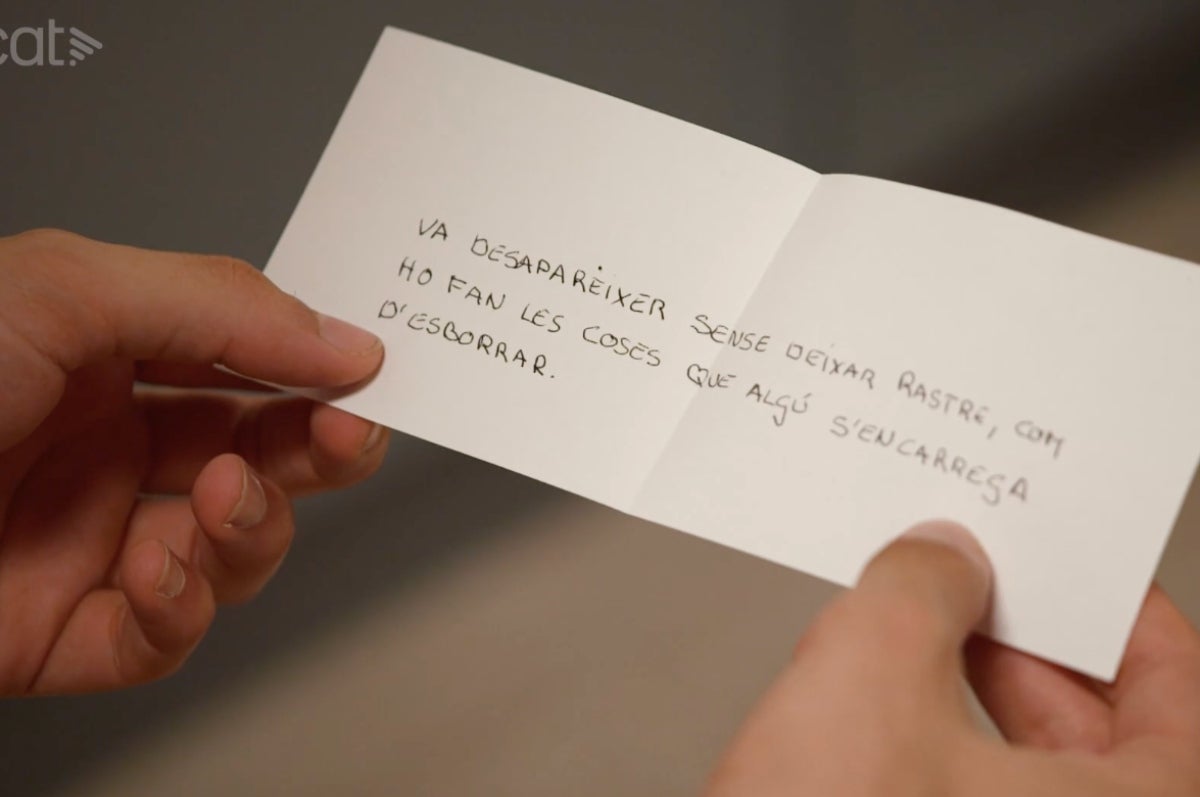 cat
VA DESAPARÈIXER SENSE DEIXAR RASTRE, COM
HO FAN LES COSES QUE ALGÚ S'ENCARREGA
D'ESBORRAR.